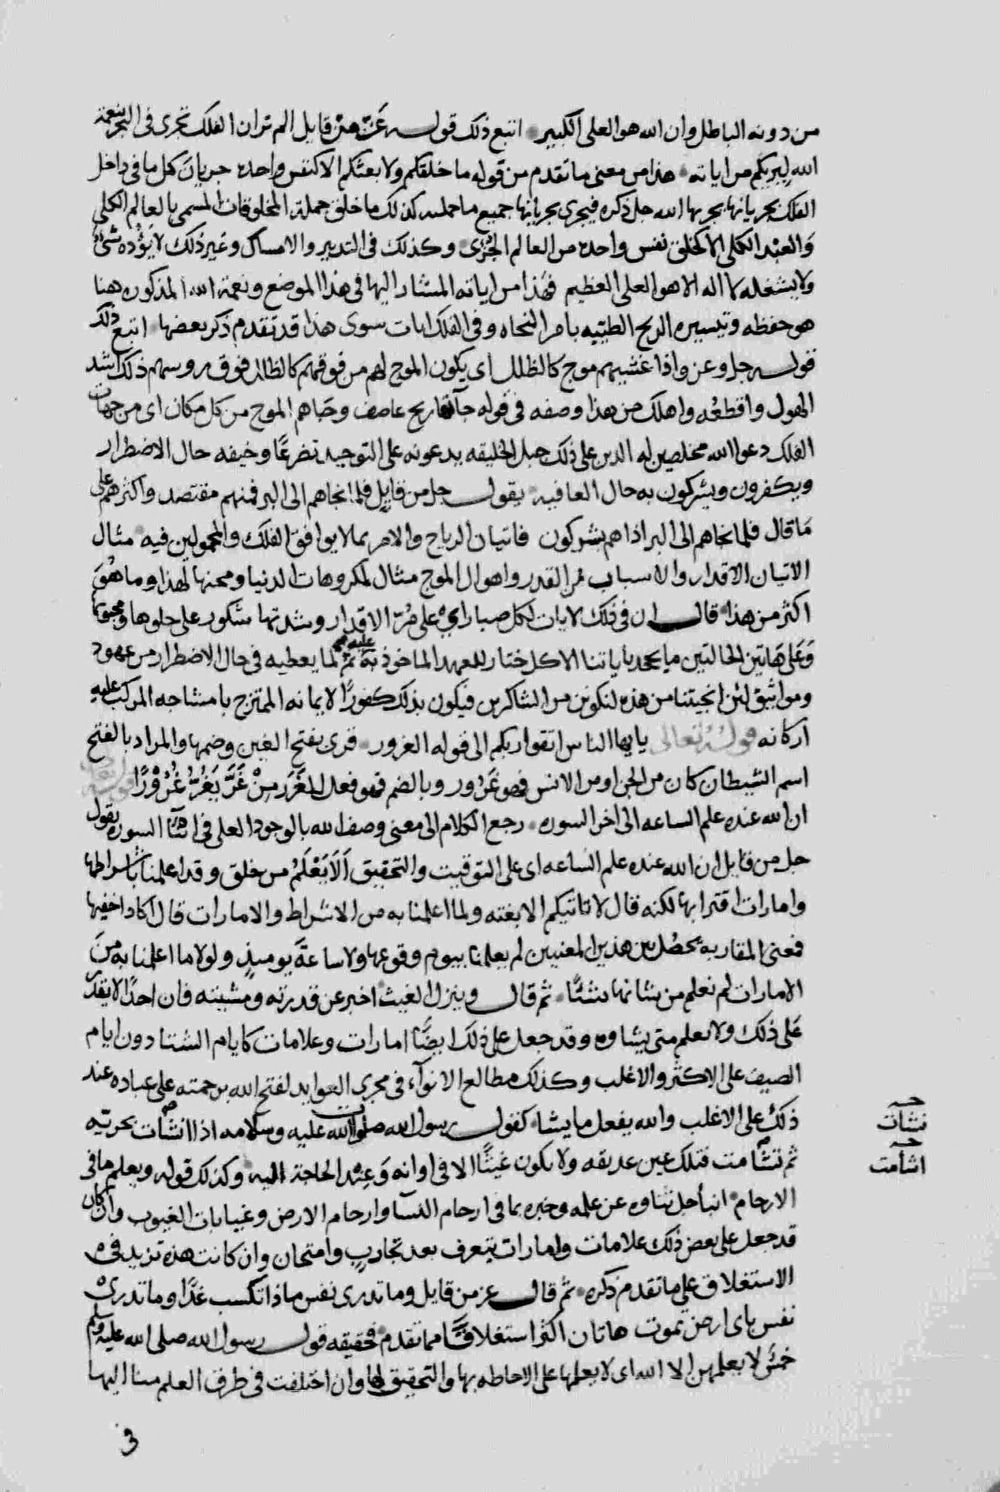 من دونه الباطل وان الله هو العلي الكبير اتبع ذلك قوله عز من قايل الم تر ان الفلك تجري في البحر بنعمة
الله ليريكم من اياته هذا من معنى ما تقدم من قوله ما خلقكم ولا بعثكم الا كنفس واحده جريان كل ما في داخل
الفلك بجريانها يجريها الله جل ذكره فيجري بجريانها جميع ما حملت كذلك ما خلق جملة المخلوقات المسمى بالعالم الكلي
والعبد الكلي الا كخلق نفس واحده من العالم الجزى وكذلك في التدبير والامساك وغير ذلك لا يؤده شيء
ولا يشغله لا اله الا هو العلي العظيم فهذا من اياته المشار اليها في هذا الموضع ونعمة الله المذكوره هنا
هو حفظه وتيسيره الريح الطيبه بامر النجاه وفي الفلك ايات سوى هذا قد تقدم ذكر بعضها اتبع ذلك
قوله جل وعز واذا غشيهم موج كالظلل اي يكون الموج لهم من فوقهم كالظلل فوق روسهم ذلك اشد
الهول واقطعه واهلك من هذا وصفه في قوله جاتها ريح عاصف وجاهم الموج من كل مكان اي من جهات
الفلك دعوا الله مخلصين له الدين على ذلك جبل الخليقه يدعونه على التوحيد تضرعا وخيفه حال الاضطرار
ويكفرون ويشركون به حال العافيه يقول جل من قايل فلما نجاهم الى البر فمنهم مقتصد واكثرهم على
ما قال فلما نجاهم الى البر اذا هم يشركون فاتيان الرياح والامر بما لا يوافق الفلك والمحمولين فيه مثال
لاتيان الاقدار والاسباب من القدر واهوال الموج مثال لمكروهات الدنيا ومحنها لهذا وما هو
اكثر من هذا قال ان في ذلك لايات لكل صبار اي على مر الاقدار وشدتها شكور على حلوها ومحبوبها
وعلى هاتين الحالتين ما يجحد باياتنا الا كل ختار للعهد الماخوذ عليهم به ثم لما يعطيه في حال الاضطرار من عهود
ومواثيق لئن انجيتنا من هذه لنكونن من الشاكرين فيكون بذلك كفورا لايمانه الممتزج بامشاجه المركب عليه
اركانه قوله تعالى يايها الناس اتقوا ربكم الى قوله الغرور قرى بفتح الغين وضمها والمراد بالفتح
اسم الشيطان كان من الجن او من الانس فهو غرور وبالضم فهو فعل المغرر من غر يغر غرورا قوله تعالى
ان الله عنده علم الساعه الى اخر السوره رجع الكلام الى معنى وصف الله بالوجود العلي في اثنا السوره يقول
جل من قايل ان الله عنده علم الساعه اي على التوقيت والتحقيق الا يعلم من خلق وقد اعلمنا باشراطها
وامارات اقترابها لكنه قال لا تاتيكم الا بغته ولما اعلمنا به من الاشراط والامارات قال اكاد اخفيها
فمعنى المقاربه يحصل بين هذين المعنيين لم يعلمنا بيوم وقوعها ولا ساعة يوميذ ولولا ما اعلمنا به من
الامارات لم نعلم من شانها شيئا ثم قال وينزل الغيث اخبر عن قدرته ومشيته فان احدا لا يقدر
على ذلك ولا يعلم متى يشاوه وقد جعل على ذلك ايضا امارات وعلامات كايام الشتا دون ايام
الصيف على الاكثر والاغلب وكذلك مطالع الانواء في مجرى العوايد لفتح الله برحمته على عباده عند
ذلك على الاغلب والله يفعل ما يشا كقول رسول الله صلوات الله عليه وسلامه اذا انشأت بحريه
ثم تشامت فتلك عين غديقه ولا يكون غيثا الا في اوانه وعند الحاجة اليه وكذلك قوله ويعلم ما في
الارحام انبأ جل ثناوه عن علمه وخبره بما في ارحام النسا وارحام الارض وغيابات الغيوب وان كان
قد جعل على بعض ذلك علامات وامارات يتعرف بعد تجارب وامتحان وان كانت هذه تزيد في
الاستغلاق على ما تقدم ذكره ثم قال عز من قايل وما تدري نفس ماذا تكسب غدا وما تدري
نفس باي ارض تموت هاتان اكثر استغلاقا مما تقدم فحقيقه قول رسول الله صلى الله عليه وسلم
خمس لا يعلمهن الا الله اي لا يعلمها على الاحاطه بها والتحقيق لها وان اختلفت في طرق العلم منا اليها
نشات
اشامت